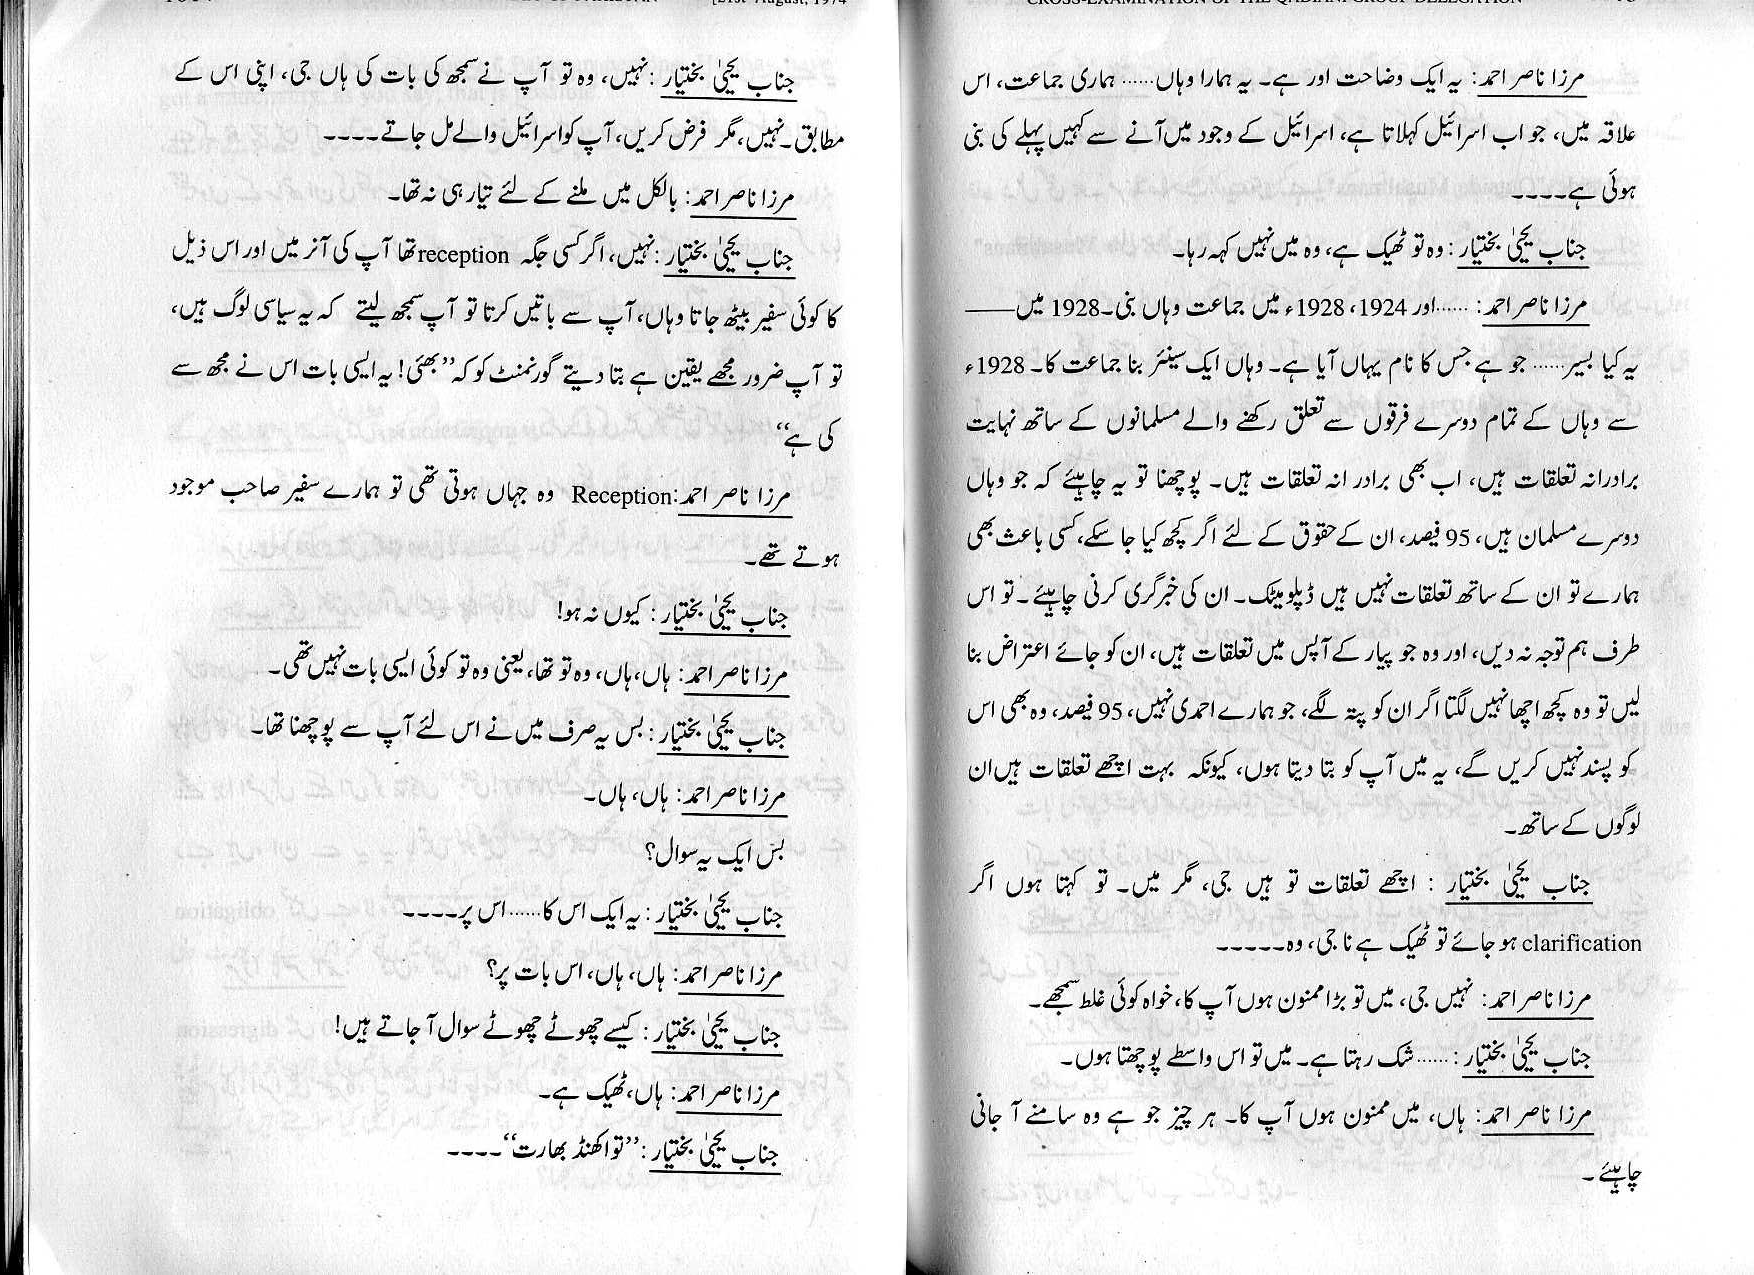 CROSS-EXAMINATION OF THE QADIANI GROUP DELEGATION
مرزا ناصر احمد: یہ ایک وضاحت اور ہے۔ یہ ہمارا وہاں...... ہماری جماعت، اس
علاقہ میں، جو اب اسرائیل کہلاتا ہے، اسرائیل کے وجود میں آنے سے کہیں پہلے کی بنی
ہوئی ہے۔۔۔۔
جناب یحییٰ بختیار: وہ تو ٹھیک ہے، وہ میں نہیں کہہ رہا۔
مرزا ناصر احمد: ......اور 1924، 1928ء میں جماعت وہاں بنی۔ 1928 میں——
یہ کیا بسیر...... جو ہے جس کا نام یہاں آیا ہے۔ وہاں ایک سینٹر بنا جماعت کا۔ 1928ء
سے وہاں کے تمام دوسرے فرقوں سے تعلق رکھنے والے مسلمانوں کے ساتھ نہایت
برادرانہ تعلقات ہیں، اب بھی برادرانہ تعلقات ہیں۔ پوچھنا تو یہ چاہیئے کہ جو وہاں
دوسرے مسلمان ہیں، 95 فیصد، ان کے حقوق کے لئے اگر کچھ کیا جا سکے، کسی باعث بھی
ہمارے تو ان کے ساتھ تعلقات نہیں ہیں ڈپلومیٹک۔ ان کی خبرگری کرنی چاہیئے۔ تو اس
طرف ہم توجہ نہ دیں، اور وہ جو پیار کے آپس میں تعلقات ہیں، ان کو جائے اعتراض بنا
لیں تو وہ کچھ اچھا نہیں لگتا اگر ان کو پتہ لگے، جو ہمارے احمدی نہیں، 95 فیصد، وہ بھی اس
کو پسند نہیں کریں گے، یہ میں آپ کو بتا دیتا ہوں، کیونکہ بہت اچھے تعلقات ہیں ان
لوگوں کے ساتھ۔
جناب یحییٰ بختیار: اچھے تعلقات تو ہیں جی، مگر میں۔ تو کہتا ہوں اگر
clarification ہو جائے تو ٹھیک ہے نا جی، وہ۔۔۔۔۔
مرزا ناصر احمد: نہیں جی، میں تو بڑا ممنون ہوں آپ کا، خواہ کوئی غلط سمجھے۔
جناب یحییٰ بختیار: ......شک رہتا ہے۔ میں تو اس واسطے پوچھتا ہوں۔
مرزا ناصر احمد: ہاں، میں ممنون ہوں آپ کا۔ ہر چیز جو ہے وہ سامنے آ جانی
چاہیئے۔
[21st August, 1974
جناب یحییٰ بختیار: نہیں، وہ تو آپ نے سمجھ کی بات کی ہاں جی، اپنی اس کے
مطابق۔ نہیں، مگر فرض کریں، آپ کو اسرائیل والے مل جاتے۔۔۔۔
مرزا ناصر احمد: بالکل میں ملنے کے لئے تیار ہی نہ تھا۔
جناب یحییٰ بختیار: نہیں، اگر کسی جگہ reception تھا آپ کی آنر میں اور اس ذیل
کا کوئی سفیر بیٹھ جاتا وہاں، آپ سے باتیں کرتا تو آپ سمجھ لیتے کہ یہ سیاسی لوگ ہیں،
تو آپ ضرور مجھے یقین ہے بتا دیتے گورنمنٹ کو کہ ”بھئی! یہ ایسی بات اس نے مجھ سے
کی ہے“
مرزا ناصر احمد: Reception وہ جہاں ہوتی تھی تو ہمارے سفیر صاحب موجود
ہوتے تھے۔
جناب یحییٰ بختیار: کیوں نہ ہو!
مرزا ناصر احمد: ہاں، ہاں، وہ تو تھا، یعنی وہ تو کوئی ایسی بات نہیں تھی۔
جناب یحییٰ بختیار: بس یہ صرف میں نے اس لئے آپ سے پوچھنا تھا۔
مرزا ناصر احمد: ہاں، ہاں۔
بس ایک یہ سوال؟
جناب یحییٰ بختیار: یہ ایک اس کا...... اس پر۔۔۔۔
مرزا ناصر احمد: ہاں، ہاں، اس بات پر؟
جناب یحییٰ بختیار: کیسے چھوٹے چھوٹے سوال آ جاتے ہیں!
مرزا ناصر احمد: ہاں، ٹھیک ہے۔
جناب یحییٰ بختیار: ”تو اکھنڈ بھارت“۔۔۔۔